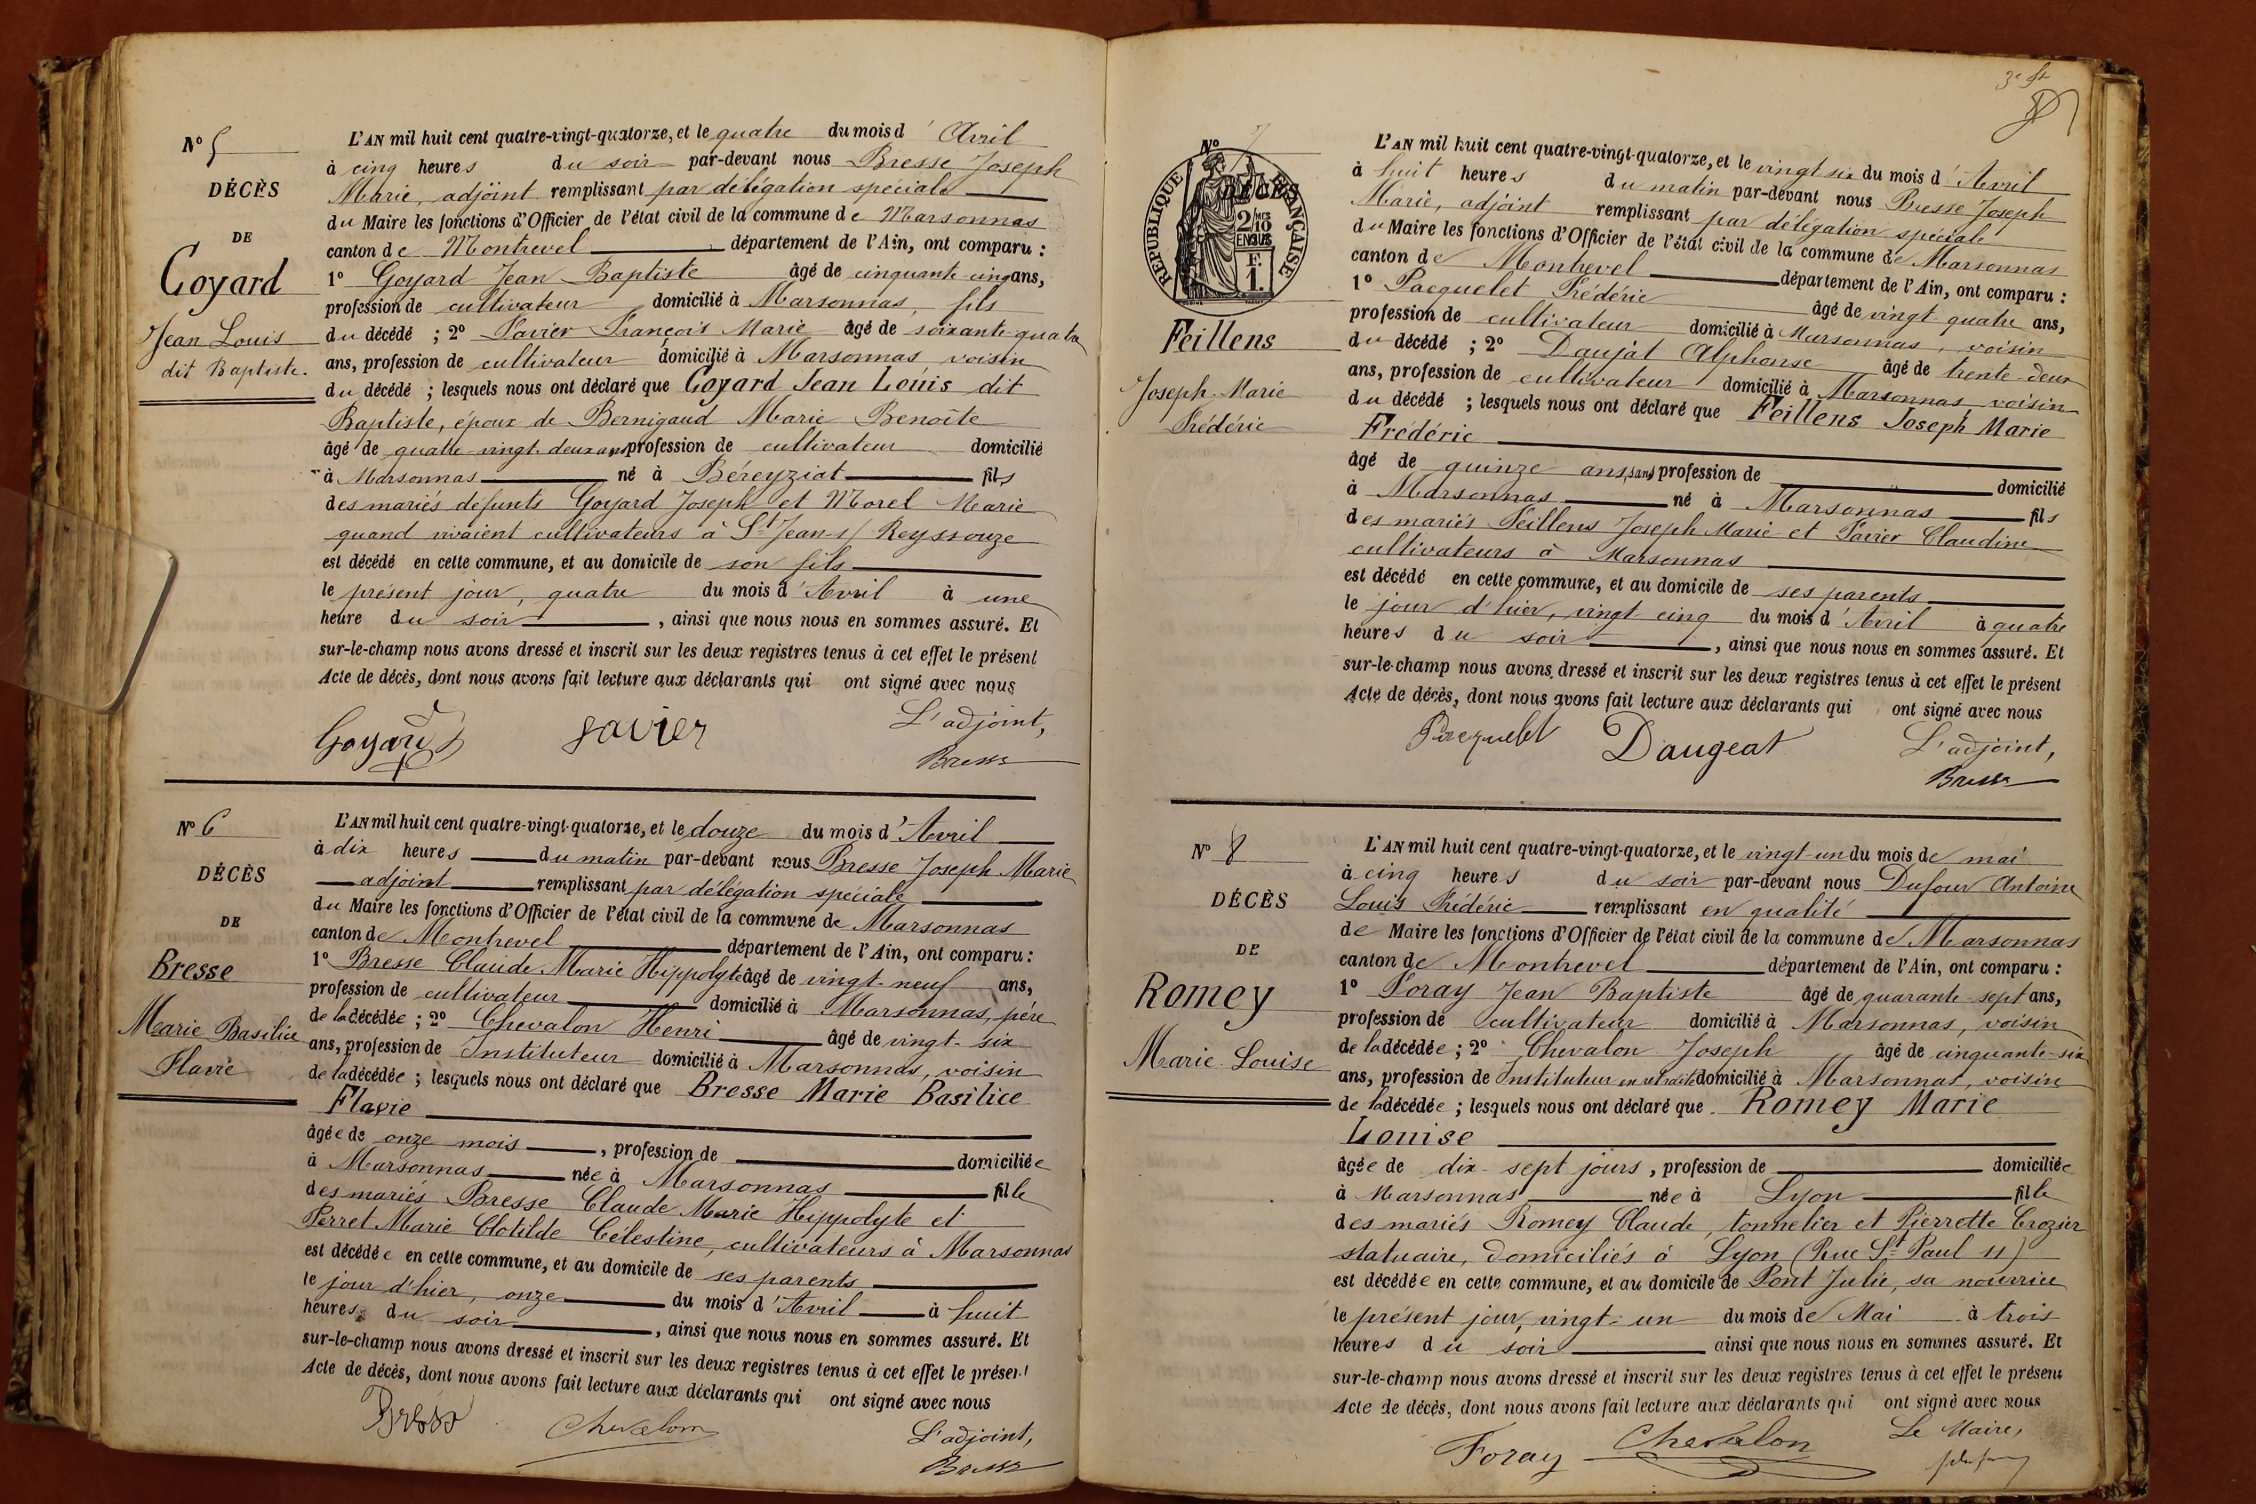 N° 5
DÉCÈS
DE
Goyard
Jean Louis
dit Baptiste.
L'AN mil huit cent quatre-vingt-quatorze, et le quatre du mois d'Avril
à cinq heures du soir par-devant nous Bresse Joseph
Marie, adjoint remplissant par délégation spéciale
du Maire les fonctions d'Officier de l'état civil de la commune de Marsonnas
canton de Montrevel département de l'Ain, ont comparu :
1° Goyard Jean Baptiste âgé de cinquante cinq ans,
profession de cultivateur domicilié à Marsonnas, fils
du décédé ; 2° Favier François Marie âgé de soixante-quatre
ans, profession de cultivateur domicilié à Marsonnas voisin
du décédé ; lesquels nous ont déclaré que Goyard Jean Louis dit
Baptiste, époux de Bernigaud Marie Benoîte
âgé de quatre-vingt-deux ans profession de cultivateur domicilié
à Marsonnas né à Béreyziat fils
des mariés défunts Goyard Joseph et Morel Marie
quand vivaient cultivateurs à St Jean s/ Reyssouze
est décédé en cette commune, et au domicile de son fils
le présent jour, quatre du mois d'Avril à une
heure du soir, ainsi que nous nous en sommes assuré. Et
sur-le-champ nous avons dressé et inscrit sur les deux registres tenus à cet effet le présent
Acte de décès, dont nous avons fait lecture aux déclarants qui ont signé avec nous
Goyard favier L'adjoint,
Bresse
N° 6
DÉCÈS
DE
Bresse
Marie Basilice
Flavie
L'AN mil huit cent quatre-vingt-quatorze, et le douze du mois d'Avril
à dix heures du matin par-devant nous Bresse Joseph Marie
adjoint remplissant par délégation spéciale
du Maire les fonctions d'Officier de l'état civil de la commune de Marsonnas
canton de Montrevel département de l'Ain, ont comparu :
1° Bresse Claude Marie Hippolyte âgé de vingt-neuf ans,
profession de cultivateur domicilié à Marsonnas, père
de la décédée ; 2° Chevalon Henri âgé de vingt-six
ans, profession de Instituteur domicilié à Marsonnas, voisin
de la décédée ; lesquels nous ont déclaré que Bresse Marie Basilice
Flavie
âgée de onze mois, profession de domiciliée
à Marsonnas née à Marsonnas fille
des mariés Bresse Claude Marie Hippolyte et
Perret Marie Clotilde Célestine, cultivateurs à Marsonnas
est décédée en cette commune, et au domicile de ses parents
le jour d'hier, onze du mois d'Avril à huit
heures du soir, ainsi que nous nous en sommes assuré. Et
sur-le-champ nous avons dressé et inscrit sur les deux registres tenus à cet effet le présent
Acte de décès, dont nous avons fait lecture aux déclarants qui ont signé avec nous
Bresse Chevalon L'adjoint,
Bresse
N° 7
RÉPUBLIQUE FRANÇAISE
DÉCÈS
2/10 MES
EN SUS
F. 1.
Feillens
Joseph Marie
Frédéric
L'AN mil huit cent quatre-vingt-quatorze, et le vingt six du mois d'Avril
à huit heures du matin par-devant nous Bresse Joseph
Marie, adjoint remplissant par délégation spéciale
du Maire les fonctions d'Officier de l'état civil de la commune de Marsonnas
canton de Montrevel département de l'Ain, ont comparu :
1° Pacquelet Frédéric âgé de vingt-quatre ans,
profession de cultivateur domicilié à Marsonnas, voisin
du décédé ; 2° Daujat Alphonse âgé de trente-deux
ans, profession de cultivateur domicilié à Marsonnas voisin
du décédé ; lesquels nous ont déclaré que Feillens Joseph Marie
Frédéric
âgé de quinze ans, sans profession de domicilié
à Marsonnas né à Marsonnas fils
des mariés Feillens Joseph Marie et Favier Claudine
cultivateurs à Marsonnas
est décédé en cette commune, et au domicile de ses parents
le jour d'hier, vingt cinq du mois d'Avril à quatre
heures du soir, ainsi que nous nous en sommes assuré. Et
sur-le-champ nous avons dressé et inscrit sur les deux registres tenus à cet effet le présent
Acte de décès, dont nous avons fait lecture aux déclarants qui ont signé avec nous
Pacquelet Daugeat L'adjoint,
Bresse
N° 8
DÉCÈS
DE
Romey
Marie Louise
L'AN mil huit cent quatre-vingt-quatorze, et le vingt-un du mois de mai
à cinq heures du soir par-devant nous Dufour Antoine
Louis Frédéric remplissant en qualité
de Maire les fonctions d'Officier de l'état civil de la commune de Marsonnas
canton de Montrevel département de l'Ain, ont comparu :
1° Foray Jean Baptiste âgé de quarante-sept ans,
profession de cultivateur domicilié à Marsonnas, voisin
de la décédée ; 2° Chevalon Joseph âgé de cinquante-six
ans, profession de Instituteur en retraite domicilié à Marsonnas, voisin
de la décédée ; lesquels nous ont déclaré que Romey Marie
Louise
âgée de dix-sept jours, profession de domiciliée
à Marsonnas née à Lyon fille
des mariés Romey Claude, tonnelier et Pierrette Crozier
statuaire, domiciliés à Lyon (Rue St Paul 11)
est décédée en cette commune, et au domicile de Pont Julie, sa nourrice
le présent jour, vingt-un du mois de Mai à trois
heures du soir ainsi que nous nous en sommes assuré. Et
sur-le-champ nous avons dressé et inscrit sur les deux registres tenus à cet effet le présent
Acte de décès, dont nous avons fait lecture aux déclarants qui ont signé avec nous
Foray Chevalon Le Maire,